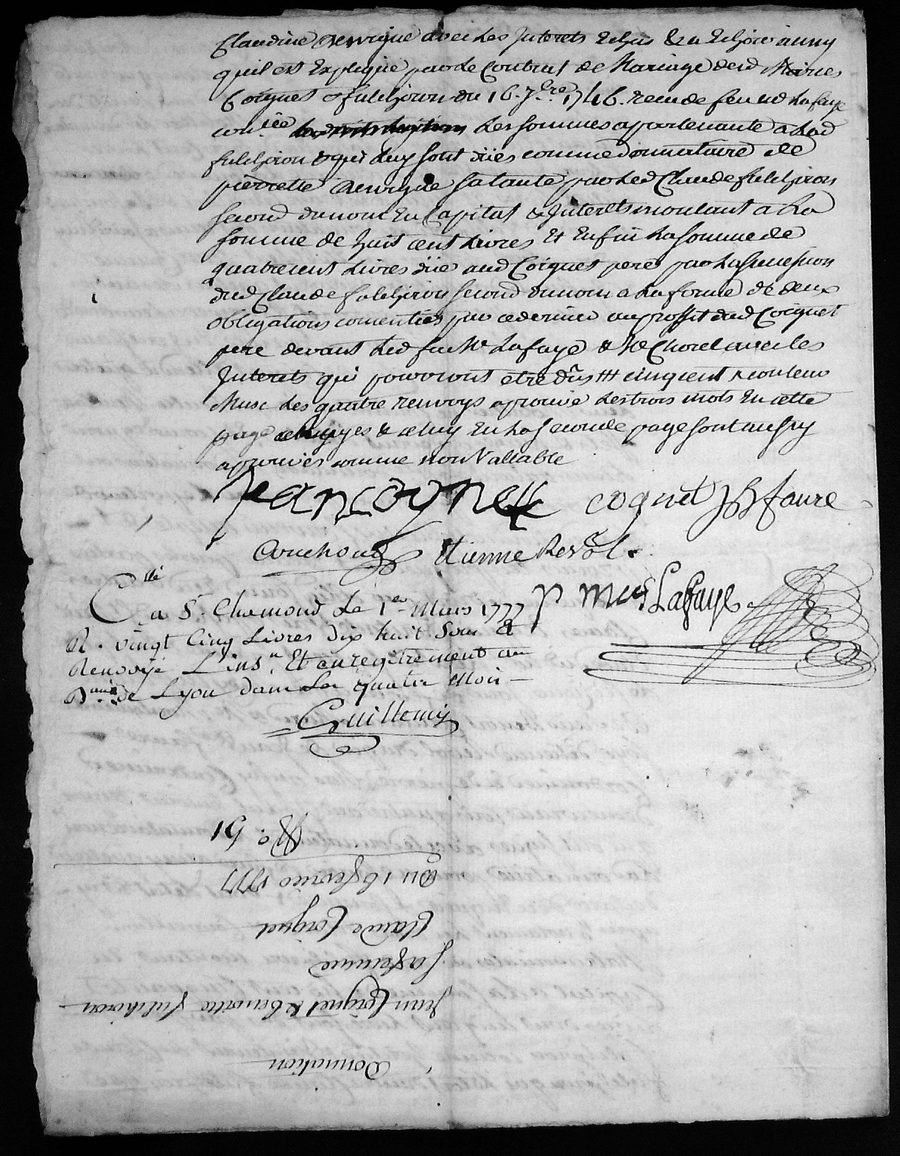 Claudine avec les Interets Echus & a Echoir ainsy
quil est Expliqué par le Contrat de Mariage desd Maries
Coignet & fulchiron du 16. 7bre 1746. receu de feu Me Lafaye
les sommes appartenante a Lad
fulchiron & qui luy sont dües comme donnataire de
pierrette sa tante par led Claude fulchiron
second du nom En Capital & Interets montant a La
somme de huit cent Livres Et Enfin La somme de
quatre cent Livres düe aud Coignet pere par La succession
dud Claude fulchiron second du nom a La forme de deux
obligations consenties par ce dernier au proffit dud Coignet
pere devant Led feu Me Lafaye & Me Chorel avec les
Interets qui pourront etre dûs cinquent couleur
Musc Les quatre renvoys aprouvé Les trois mots En cette
page & celuy En La seconde page sont aussy
aprouvés comme non Vallable
jean coynet coignet JB faure
Couchoud Etienne Revol
p mus Lafaye
Cllé a St Chamond Le 1er Mars 1777
R. vingt Cinq Livres dix huit Sous Et
Renvoyé L'ins.n Et enregitrement au
de Lyon dans Les quatre Moi
Guillemin
No. 51
Du 16 fevrier 1777
Claude Coignet
sa femme
Jean Coignet & benoitte fulchiron
Donnation